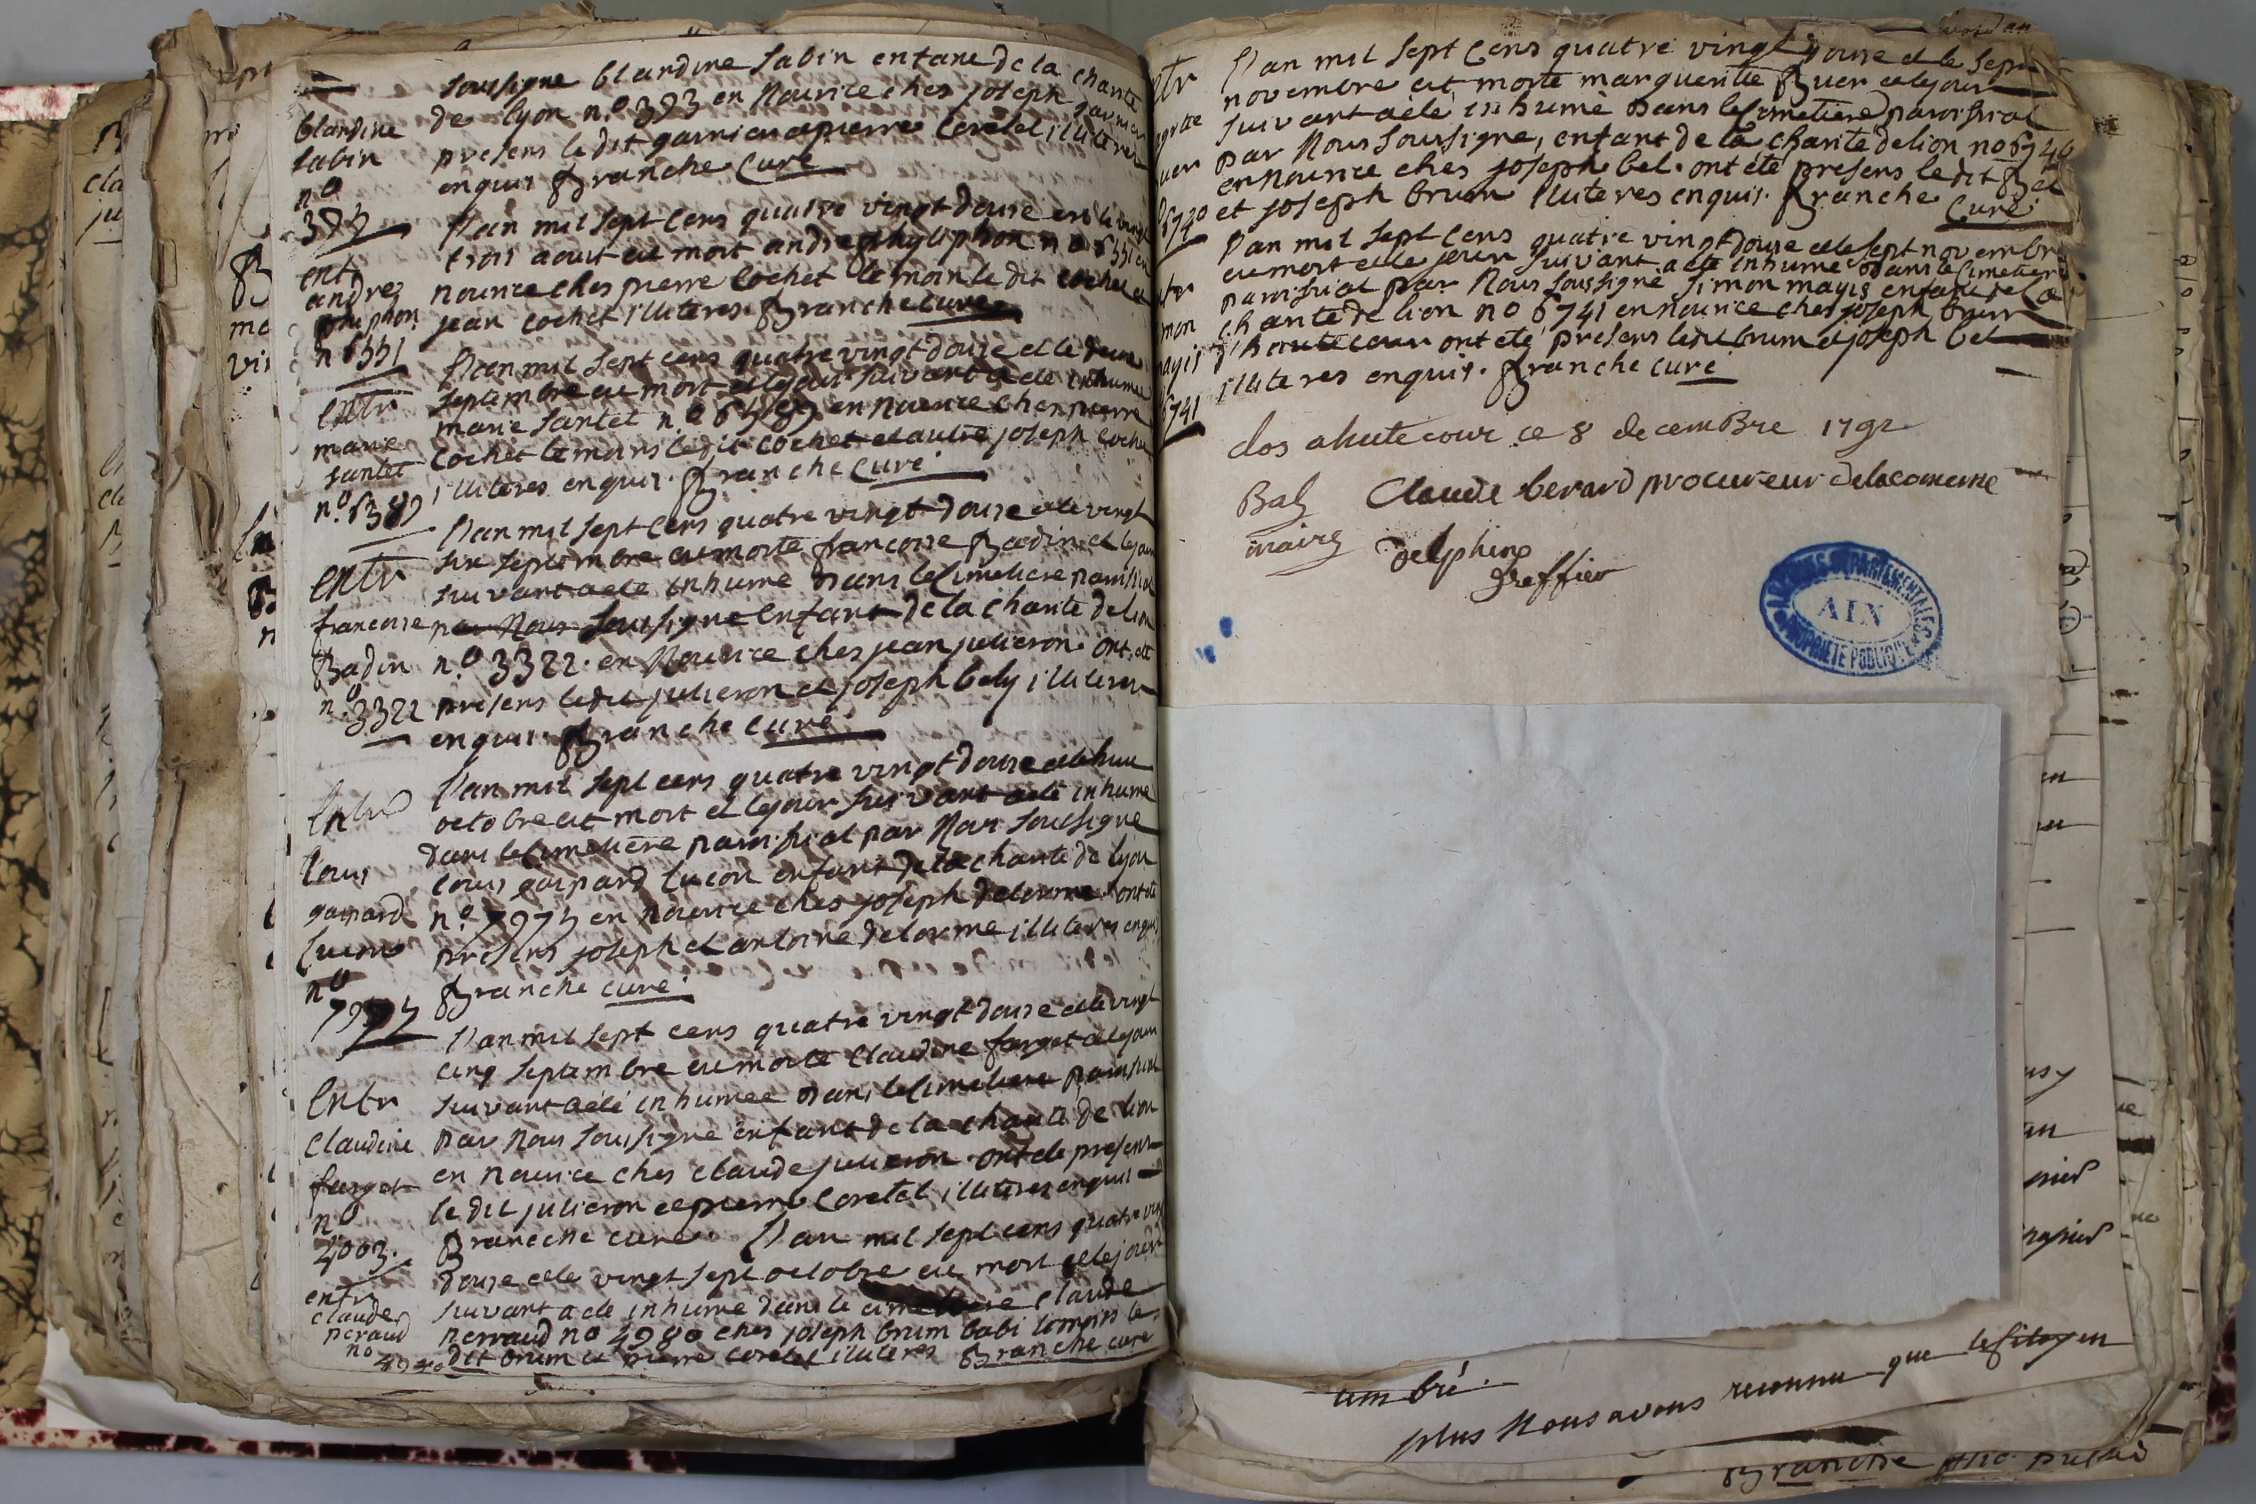 soussigne blandine Sabin enfant de la charite
de lyon n.o 393 en Nourice ches joseph garnier
presens le dit garnier et pierre Coretel illiteres
enquis Branche Curé
blandine
Sabin
n.o
393
L'an mil sept cens quatre vingt douse et le vingt
trois aout est mort andre philiphon n.o 6551 en
nourice ches pierre Cochet temoin le dit cochet et
jean Cochet illiteres. Branche Curé
entr
andre
philiphon
n 6551
L'an mil sept cens quatre vingt douse et le douse
septembre est mort et le jour suivant a eté inhumé
marie Santet n.o 6389 en nourice ches pierre
Cochet temoins le dit Cochet et autre joseph Cochet
illiteres enquis. Branche Curé
Entr
marie
Santet
n.o 6389
L'an mil sept cens quatre vingt douse et le vingt
six septembre est morte francoise Badin et le jour
suivant a eté inhume dans le Cimetiere paroissial
par Nous soussigne enfant de la charite de lion
n.o 3322. en Nourice ches jean julieron. ont eté
presens ledit julieron et joseph bely illiteres
enquis. Branche Curé
Entr
francoise
Badin
n.o 3322
L'an mil sept cens quatre vingt douse et le huit
octobre est mort et le jour suivant a eté inhumé
dans le Cimetière paroissial par Nous soussigné
Louis gaspard Lucon enfant de la charité de lyon
n.o 7973 en nourice ches joseph delorme. ont eté
presens joseph et antoine delorme illiteres enquis
Branche curé
Entr
Louis
gaspard
Lucon
n.o
7973
L'an mil sept cens quatre vingt douse et le vingt
cinq septembre est morte Claudine farget et le jour
suivant a eté inhumée dans le Cimetiere paroissial
par nous soussigne enfant de la charité de lion
en nourice ches Claude julieron. ont eté presens
le dit julieron et pierre Coretel illiteres enquis
Branche curé. L'an mil sept cens quatre vingt
Entr
Claudine
farget
n.o
4003.
douse et le vingt sept octobre est mort et le jour
suivant a eté inhumé dans le cimetiere claude
perraud no 4980 ches joseph brum babi temoins le
dit brum et pierre coretel illiteres Branche curé
entr
claude
peraud
no 4980
L'an mil sept Cens quatre vingt douse et le sept
novembre est morte marguerite Buer et le jour
suivant a eté inhumé dans le Cimetiere paroissial
par Nous soussigné, enfant de la charité de lion no 6740
en nourice ches joseph bel. ont eté presens le dit Bel
et joseph brum illiteres enquis. Branche
Curé
6740
L'an mil sept Cens quatre vingt douse et le sept novembre
est mort et le jour suivant a eté inhumé dans le Cimetiere
paroissial par Nous soussigné Simon mayis enfant de la
charité de lion no 6741 en nourice ches joseph brum
d'hautecour ont eté presens ledit brum et joseph bel
illiteres enquis. Branche Curé
6741
clos a hutecour ce 8 decemBre 1792
Bal Claude berard procureur de la comune
maire
delphin
greffier
ARCHIVES DÉPARTEMENTALES
AIN
PROPRIÉTÉ PUBLIQUE
plus Nous avons reconnu que le Citoyen
Branche